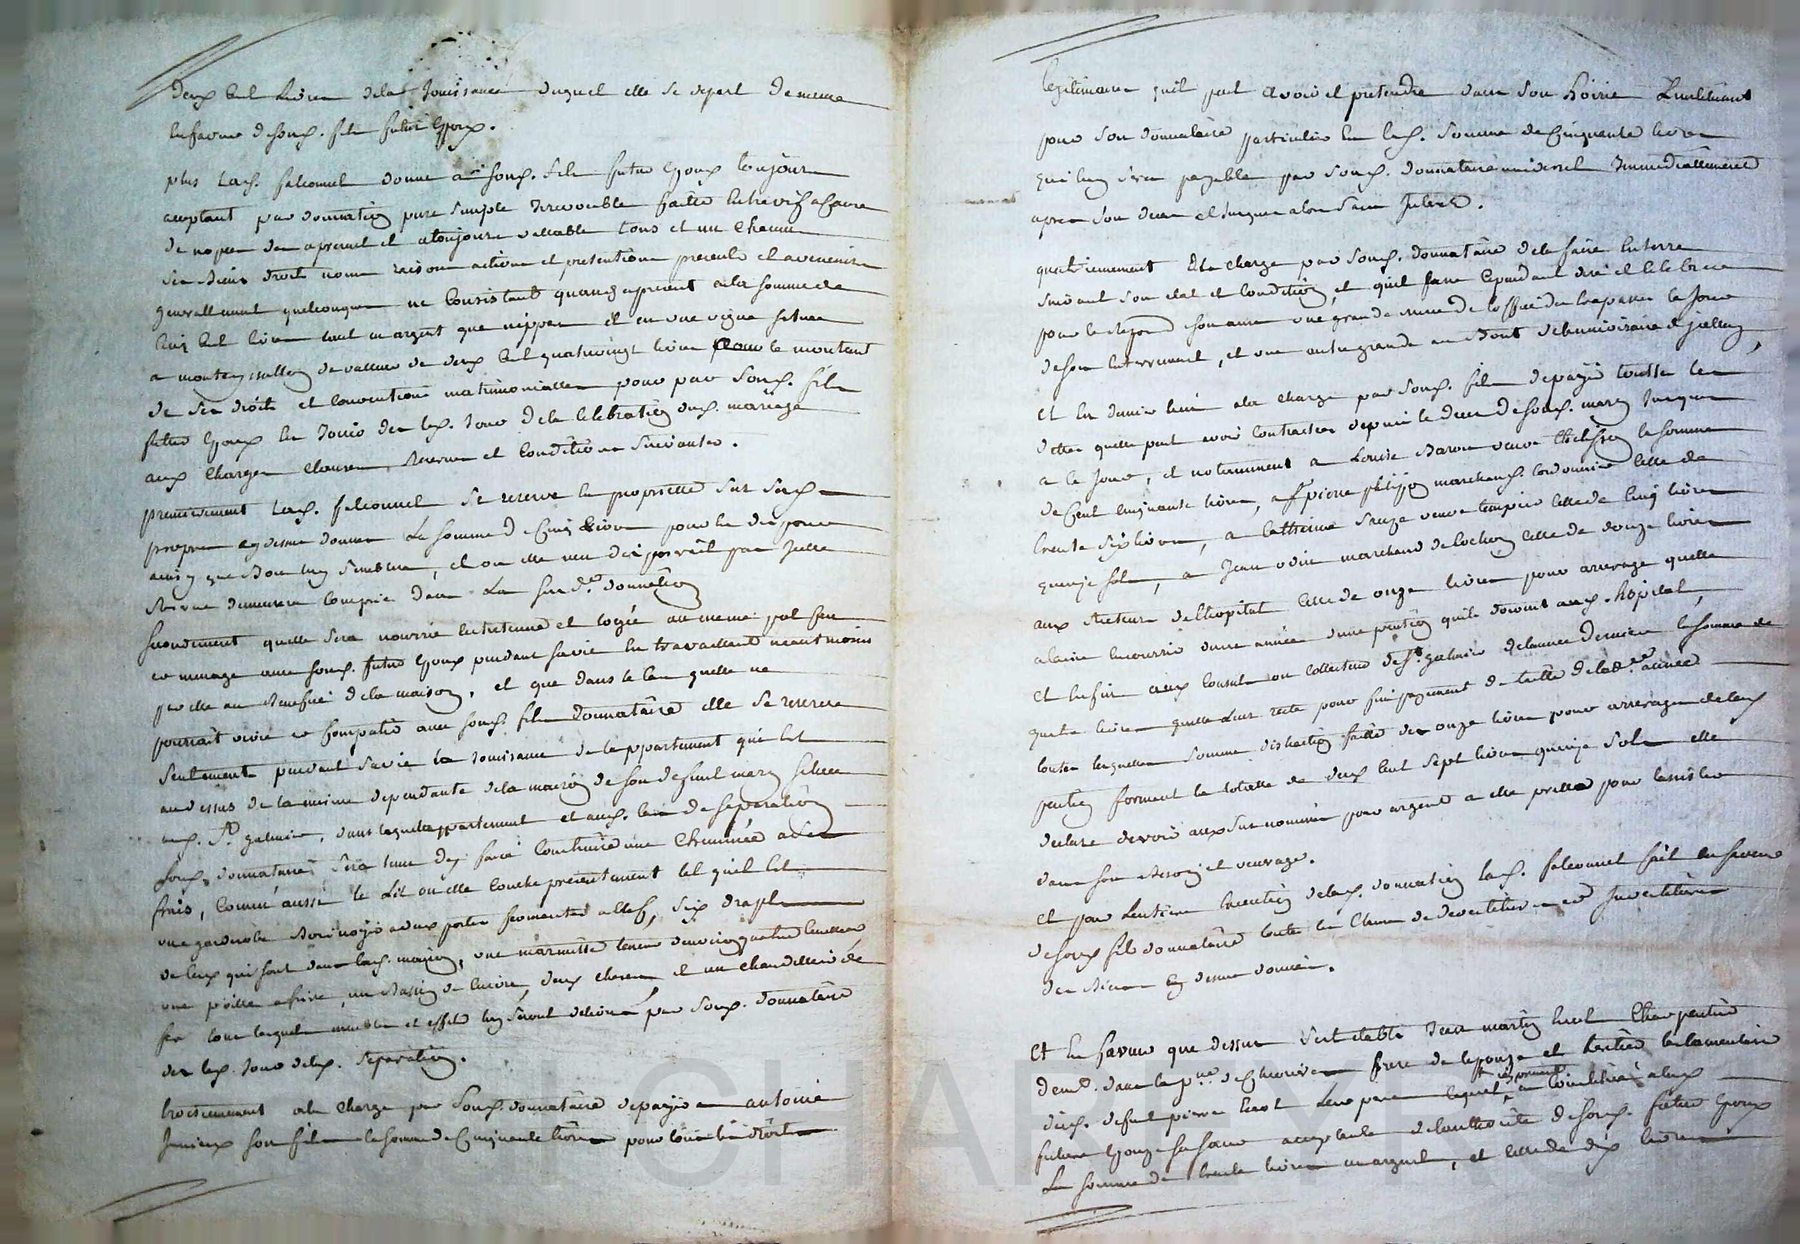 deux cent livres dela Jouissance duquel elle se depart de meme
en faveur desond. fils futur Epoux.
plus lad. falconnet donne a sond. fils futur Epoux toujours
acceptant par donnation pure simple Irrevocable faitte entrevifs a cause
de nopces des apresent et atoujours vallable tous et un chacun
ses biens droits noms raisons actions et pretentions presents et avenirs
generallement quelconques ne Consistant quand apresent ala somme de
cinq cent livres tant en argent que nippes et en une vigne situee
a de valleur de deux cent quatrevingt livres pour le montant
de ses droits et conventions matrimonialles pour par sond. fils
futur Epoux en Jouir des led. Jour dela celebration dud. mariage
aux charges clauses, Reserves et Conditions suivantes.
premierement lad. falconnet se reserve la proprietté sur sesd.
propres cy dessus donnes La somme de Cinq livres pour en disposer
ainsy que bon luy semblera, et ou elle nen disposeroit pas Icelle
Reserve demeurera comprise dans La susd. donnation
Secondement quelle sera nourrie entretenue et logée au meme pot feu
et menage avec sond. futur Epoux pendant sa vie en travaillant neantmoins
par elle au Benefice dela maison, et que dans le cas quelle ne
pourrait vivre et Compatir avec sond. fils donnataire elle se reserve
seulement pendant sa vie la Jouissance de lappartement qui est
audessus de la cuisine dependante dela maison de son defunt mary située
aud. St. galmier, dans lequel appartement et aud. cas de separation
Sond. donnataire sera tenu dy faire Construire une Cheminée a ses
frais, Comme aussi le Lit ou elle Couche presentement tel quil est
une garderobe Bois noyer a deux portes fermantes a clef, six draps
de ceux qui sont dans lad. maison, une marmitte tenant denviron quatre
une poille a frire, un Bassin de Cuivre, deux chaises et un chandellier de
fer tous lesquels meubles et effets luy seront delivrés par sond. donnataire
des led. Jour delad. separation.
troisiemement ala charge par sond. donnataire depayer a antoine
son fils la somme de Cinquante livres pour tous les droits
legitimaires quil peut avoir et pretendre dans son hoirie Linstituant
pour son donnataire particulier en lad. somme de Cinquante livres
qui luy sera payable par sond. donnataire universel Immediattement
apres son deces et jusques alors sans Interest.
quatriemement Ala charge par sond. donnataire dela faire enterrer
suivant son etat et Condition, et quil fasse Cependant dire et celebrer
pour le Repos de son ame une grande messe de loffice des trepassés le Jour
deson enterrement, et une autre grande au Bout de lanniversaire dicelluy,
Et en dernier lieu ala charge par sond. fils depayer touttes les
dettes quelle peut avoir Contractées depuis le deces desond. mary Jusques
a ce Jour, et notamment a Louise Baron veuve la somme
de Cent cinquante livres, a Sr. pierre philipon marchand cordonnier celle de
trente six livres, a Catherine Sauze veuve celle de Cinq livres
quinze sols, a Jean odin marchand de Celle de douze livres
aux Recteurs de lhopital Celle de onze livres pour arrerages quelle
a laissé encourir dune année dune pention quils doivent aud. hopital,
et enfin aux Consuls ou collecteurs de St. galmier delannée derniere la somme de
quatre livres quelle leur reste pour fin payement de taille delad. année
touttes lesquelles sommes distraction faitte des onze livres pour arrerages delad.
pention forment la totalle de deux cent sept livres quinze sols elle
declare devoir aux sus nommés pour argent a elle pretté pour
dans son Besoin et veuvage.
et pour Lentiere Execution delad. donnation lad. falconnet fait en faveur
desond. fils donnataire touttes les Clauses de devestiture et Investiture
des Biens cy dessus donnés.
Et en faveur que dessus sest etabli Jean martin Charpentier
demt. dans la psse. de frere de lepouse et heritier testamentaire
dud. defunt pierre leur pere lequel, de son gré a Constitué alad.
future Epouse sa sœur acceptante delauthorité desond. futur Epoux
La somme de trente livres en argent, et celle de dix livres